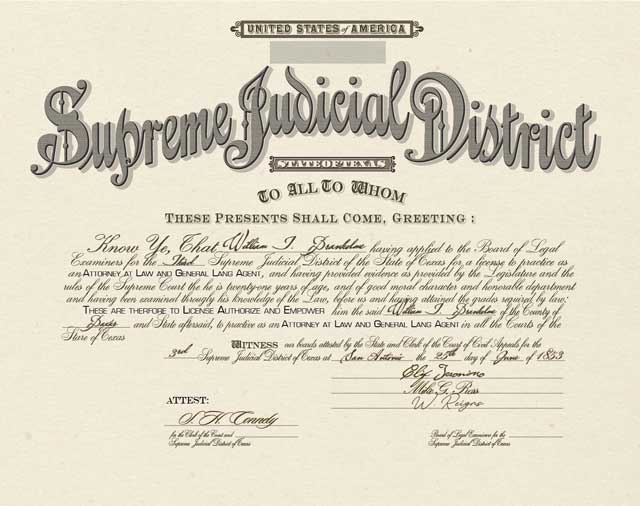 UNITED STATES of AMERICA
Supreme Judicial District
STATE OF TEXAS
TO ALL TO WHOM
THESE PRESENTS SHALL COME, GREETING :
Know Ye, That William T. having applied to the Board of Legal
Examiners for the Third Supreme Judicial District of the State of Texas for a license to practice as
an ATTORNEY AT LAW AND GENERAL LANG AGENT, and having provided evidence as provided by the Legislature and the
rules of the Supreme Court the he is twenty-one years of age, and of good moral character and honorable department
and having been examined through his knowledge of the Law, before us and having attained the grades required by law:
THESE ARE THERFORE TO LICENSE AUTHORIZE AND EMPOWER him the said William T. of the County of
and State aftersaid, to practice as an ATTORNEY AT LAW AND GENERAL LANG AGENT in all the Courts of the
Stare of Texas
WITNESS our boards attested by the State and Clerk of the Court of Civil Appeals for the
3rd Supreme Judicial District of Texas at San Antonio the 25th day of June of 1853
Ely Jeronimo
Mike G. Ross
W. Reigns
ATTEST:
S. H. Connedy
for the Clerk of the Court and
Supreme Judicial District of Texas
Board of Legal Examiners for the
Supreme Judicial District of Texas